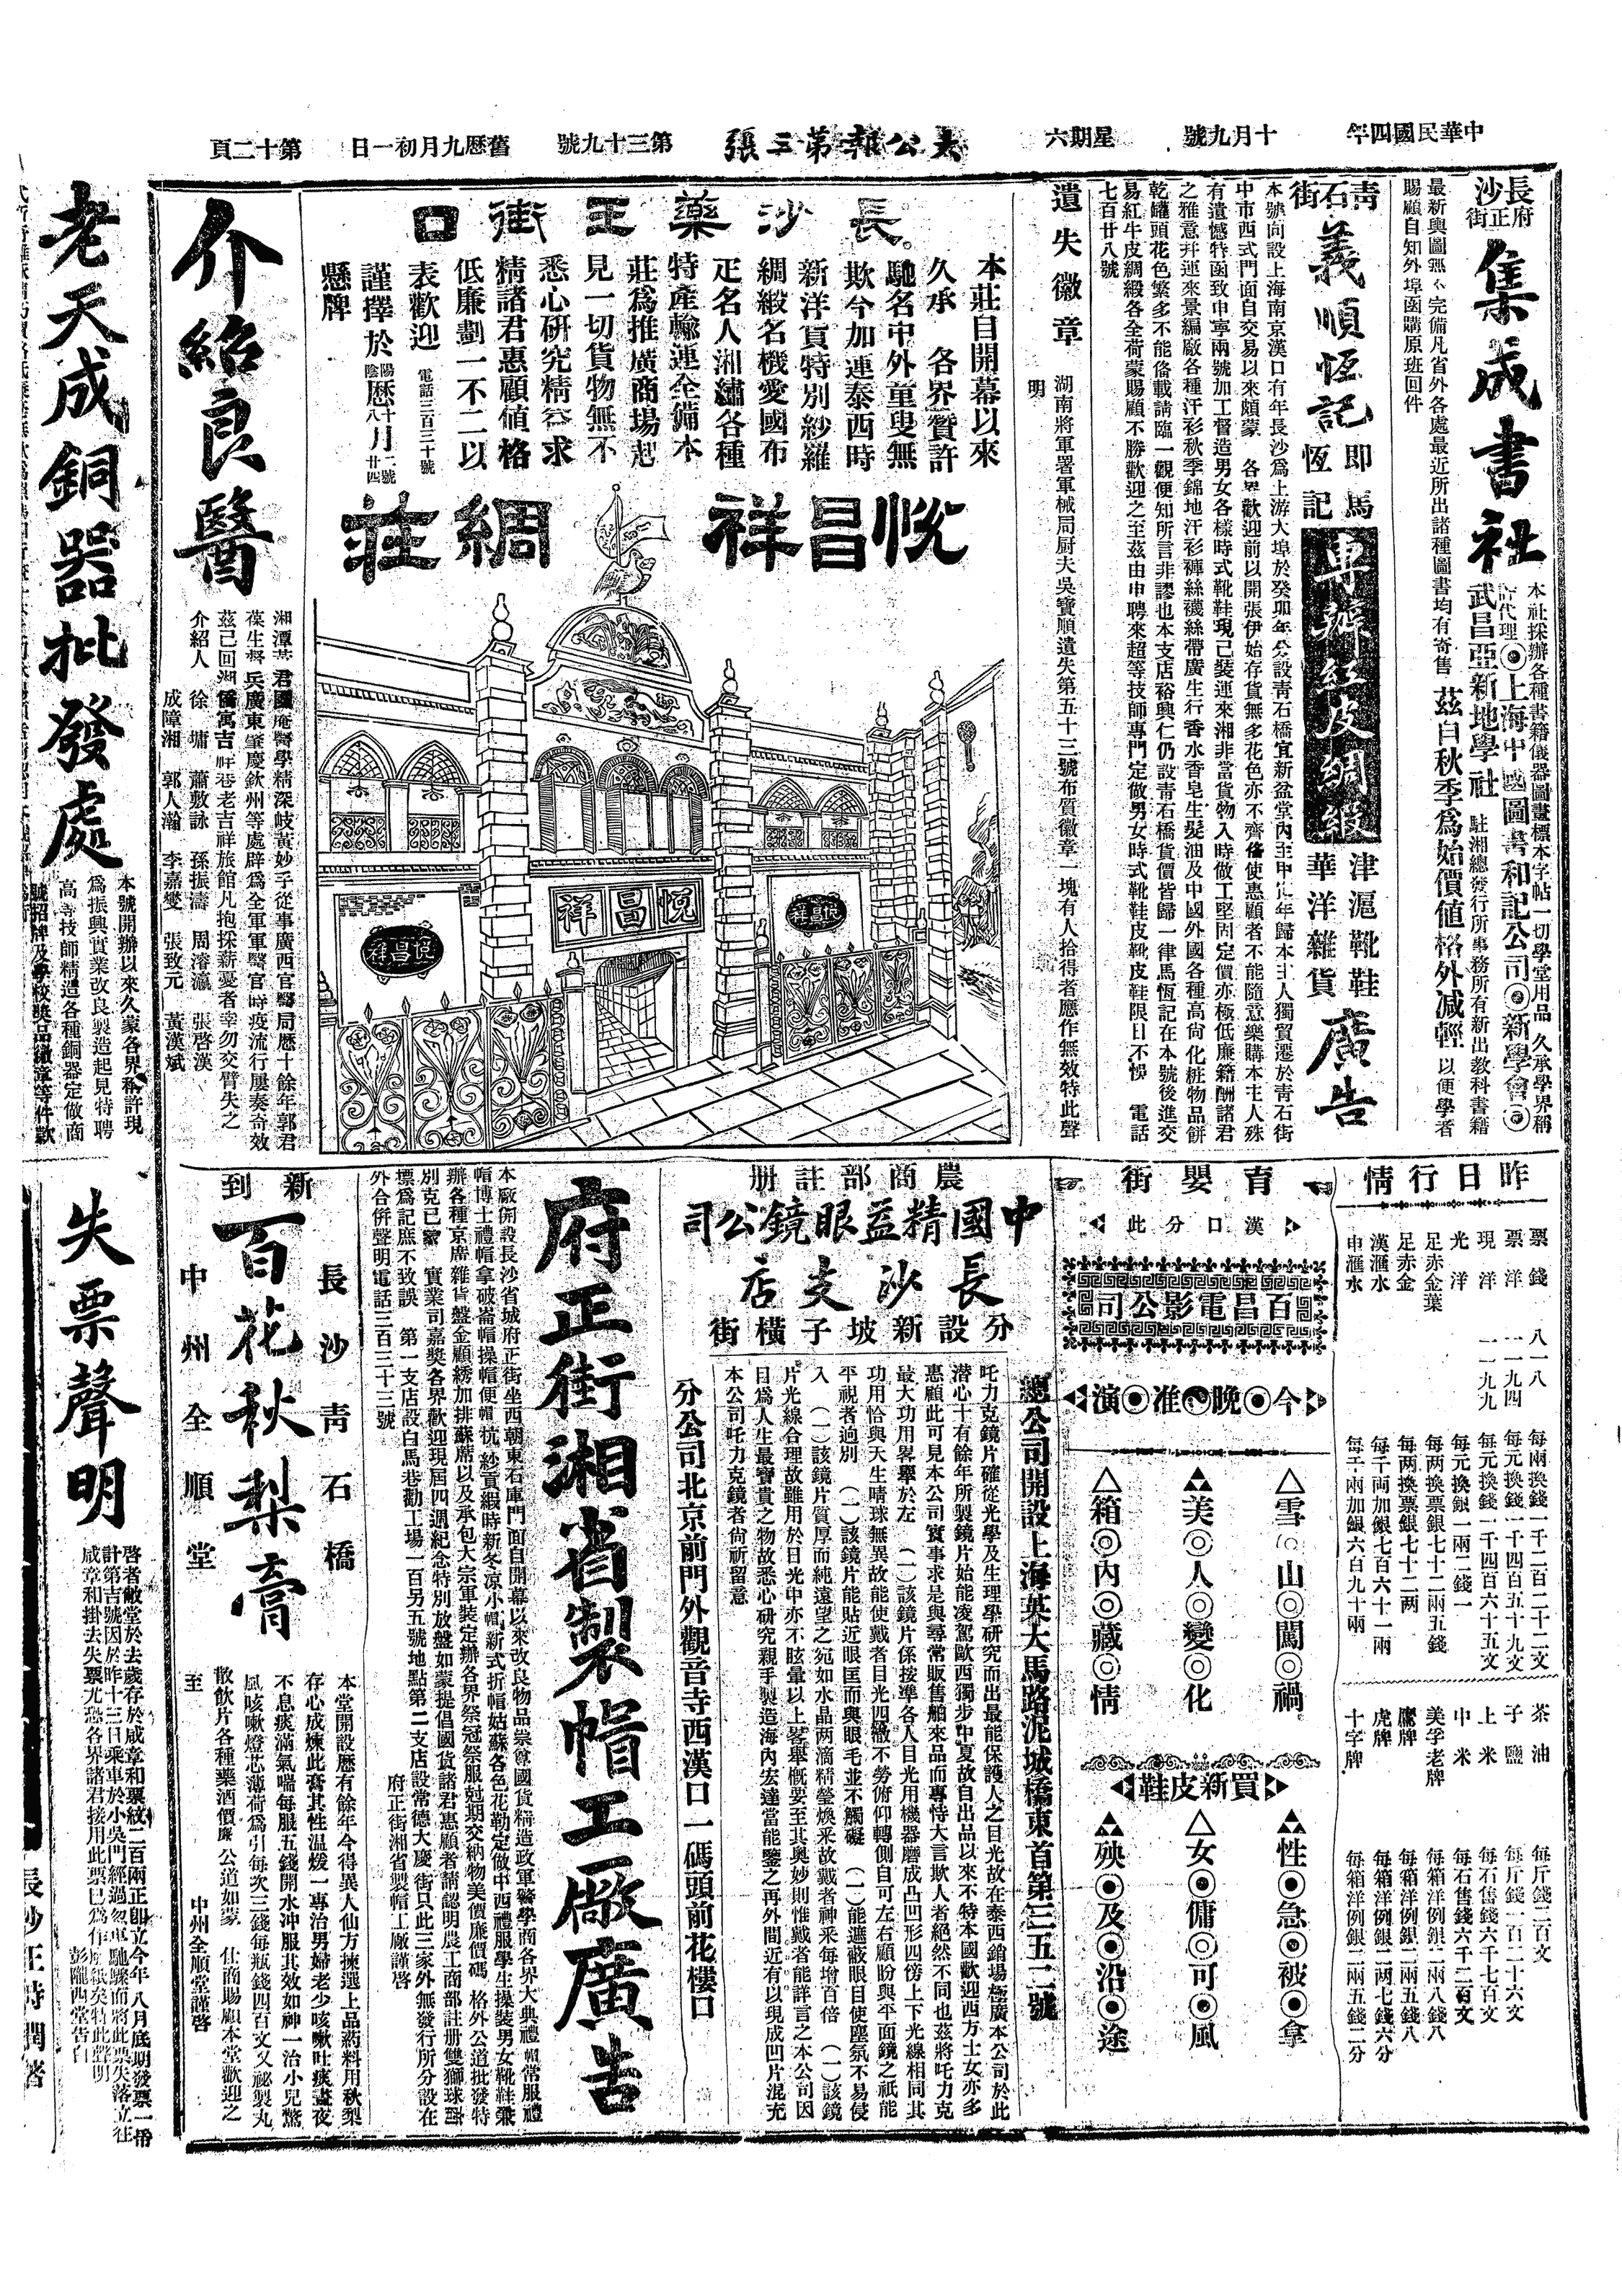 中華民國四年 十月九號 星期六 大公報第三張 第三十九號 舊曆九月初一日 第十二頁
長沙府正街
集成書社
本社採辦各種書籍儀器圖畫標本字帖一切學堂用品久承學界稱
代理◉上海中國圖書和記公司◉新學會◉
武昌亞新地學社 駐湘總發行所事務所所有新出教科書籍
茲自秋季爲始價值格外减輕以便學者
最新輿圖無不完備凡省外各處最近所出諸種圖書均有寄售
賜顧自知外埠函購原班回件
青石街
義順恆記
即馬恆記
專辦紅皮綢緞
津滬靴鞋
華洋雜貨
廣告
本號向設上海南京漢口有年長沙爲上游大埠於癸卯年分設青石橋宜新盆堂內
中市西式門面自交易以來頗蒙 各界歡迎前以開張伊始存貨無多花色亦不齊備使惠顧者不能隨意樂購本主人殊
有遺憾特函致申寧兩號加工督造男女各樣時式靴鞋現已裝運來湘非當貨物入時做工堅固定價亦極低廉籍酬諸君
之雅意幷運來景編廠各種汗衫秋季錦地汗衫褲絲襪絲帶廣生行香水香皂生髮油及中國外國各種高尙化粧物品餅
乾罐頭花色繁多不能俻載請臨一觀便知所言非謬也本支店裕興仁仍設青石橋貨價皆歸一律馬恆記在本號後進交
易紅牛皮綢緞各全荷蒙賜顧不勝歡迎之至茲由申聘來超等技師專門定做男女時式靴鞋皮靴皮鞋限日不悞 電話
七百廿八號
遺失徽章
湖南將軍署軍械局厨夫吳寶順遺失第五十三號布質徽章一塊有人拾得者應作無效特此聲
明
長沙藥王街口
本莊自開幕以來
久承 各界贊許
馳名中外童叟無
欺今加運泰西時
新洋貨特別紗羅
綢緞名機愛國布
疋名人湘繡各種
特產輸運全備本
莊爲推廣商場起
見一切貨物無不
悉心硏究精益求
精諸君惠顧値格
低廉劃一不二以
表歡迎 電話三百三十號
謹擇於陽陰歷十八月二廿四號
懸牌
悅昌祥 綢莊
悅昌祥
悅昌祥
悅昌祥
介紹良醫
君國庵醫學精深岐黃妙手從事廣西官醫局歷十餘年郭君
葆生督兵廣東肇慶欽州等處辟爲全軍軍醫官時疫流行屢奏奇效
茲已回湘僑寓吉祥巷老吉祥旅館凡抱採薪憂者幸勿交臂失之
介紹人 徐墉 蕭敷詠 孫振濤 周濬瀛 張啓漢
成障湘 郭人瀚 李嘉燮 張致元 黃漢斌
老天成銅器批發處
本號開辦以來久蒙各界稱許現
爲振興實業改良製造起見特聘
高等技師精造各種銅器定做商
號招牌及學校獎品徽章等件歡
昨日行情
票錢 八一八 每兩換錢一千二百二十二文
票洋 一一九四 每元換錢一千四百五十九文
現洋 一一九九 每元換錢一千四百六十五文
光洋 每元換銀一兩二錢一
足赤金葉 每两換票銀七十二兩五錢
足赤金 每两換票銀七十二两
漢滙水 每千両加銀七百六十一兩
申滙水 每千兩加銀六百九十兩
茶油 每斤錢二百文
子鹽 每斤錢一百二十六文
上米 每石售錢六千七百文
中米 每石售錢六千二百文
美孚老牌 每箱洋例銀二兩八錢八
鷹牌 每箱洋例銀二兩五錢八
虎牌 每箱洋例銀二两七錢六分
十字牌 每箱洋例銀二兩五錢二分
育嬰街
漢口分此
百昌電影公司
今◉晚◉准◉演
△雪◎山◎闖◎禍
▲美◎人◎變◎化
△箱◎內◎藏◎情
買新皮鞋
▲性◉急◉被◉拿
△女◉傭◎可◉風
▲殃◉及◉沿◉途
農商部註册
中國精益眼鏡公司
長沙支店
分設新坡子橫街
總公司開設上海英大馬路泥城橋東首第三五二號
吒力克鏡片確從光學及生理學硏究而出最能保護人之目光故在泰西銷場極廣本公司於此
潜心十有餘年所製鏡片始能凌駕歐西獨步中夏故自出品以來不特本國歡迎西方士女亦多
惠顧此可見本公司實事求是與尋常販售舶來品而專恃大言欺人者絕然不同也茲將吒力克
最大功用畧舉於左 (一)該鏡片係按準各人目光用機器磨成凸凹形四傍上下光線相同其
功用恰與天生睛球無異故能使戴者目光四矚不勞俯仰轉側自可左右顧盼與平面鏡之祇能
平視者逈別 (一)該鏡片能貼近眼匡而與眼毛並不觸礙 (一)能遮蔽眼目使塵氛不易侵
入 (一)該鏡片質厚而純遠望之宛如水晶兩滴精瑩煥采故戴者神采每增百倍 (一)該鏡
片光線合理故雖用於日光中亦不眩暈以上畧舉槪要至其奥妙則惟戴者能詳言之本公司因
目爲人生最寶貴之物故悉心硏究親手製造海內宏達當能鑒之再外間近有以現成凹片混充
本公司吒力克鏡者尙祈留意
分公司北京前門外觀音寺西漢口一碼頭前花樓口
府正街湘省製帽工厰廣告
本廠開設長沙省城府正街坐西朝東石庫門面自開幕以來改良物品崇尊國貨精造政軍警學商各界大典禮帽常服禮
帽博士禮帽拿破崙帽操帽便帽杭紗貢緞時新冬凉小帽新式折帽姑蘇各色花勒定做中西禮服學生操裝男女靴鞋兼
辦各種京廣雜貨盤金顧綉加排蘇席以及承包大宗軍裝定辦各界祭冠祭服尅期交納物美價廉價碼格外公道批發特
別克已蒙 實業司嘉獎各界歡迎現屆四週紀念特別放盤如蒙提倡國貨諸君惠顧者請認明農工商部註册雙獅球
標爲記庶不致誤 第一支店設白馬巷勸工場一百另五號地點第二支店設常德大慶街只此三家外無發行所分設在
外合併聲明電話三百三十三號 府正街湘省製帽工厰謹啓
新到
長沙青石橋
百花秋梨膏
中州全順堂
本堂開設歷有餘年今得異人仙方揀選上品葯料用秋梨
存心成煉此膏其性温煖一專治男婦老少咳嗽吐痰晝夜
不息痰滿氣喘每服五錢開水冲服其效如神一治小兒驚
風咳嗽燈芯薄荷爲引每次三錢每瓶錢四百文又祕製丸
散飲片各種藥酒價廉公道如蒙 仕商賜顧本堂歡迎之
至 中州全順堂謹啓
失票聲明
啓者敝堂於去歲存於咸章和票紋二百兩正卽立今年八月底期發票一帋
計第吉號因於昨十三日乘車於小吳門經過忽車馳驟而將此票失落立往
咸章和掛去失票尤恐各界諸君接用此票已爲作廢紙矣特此聲明
彭隴西堂告白